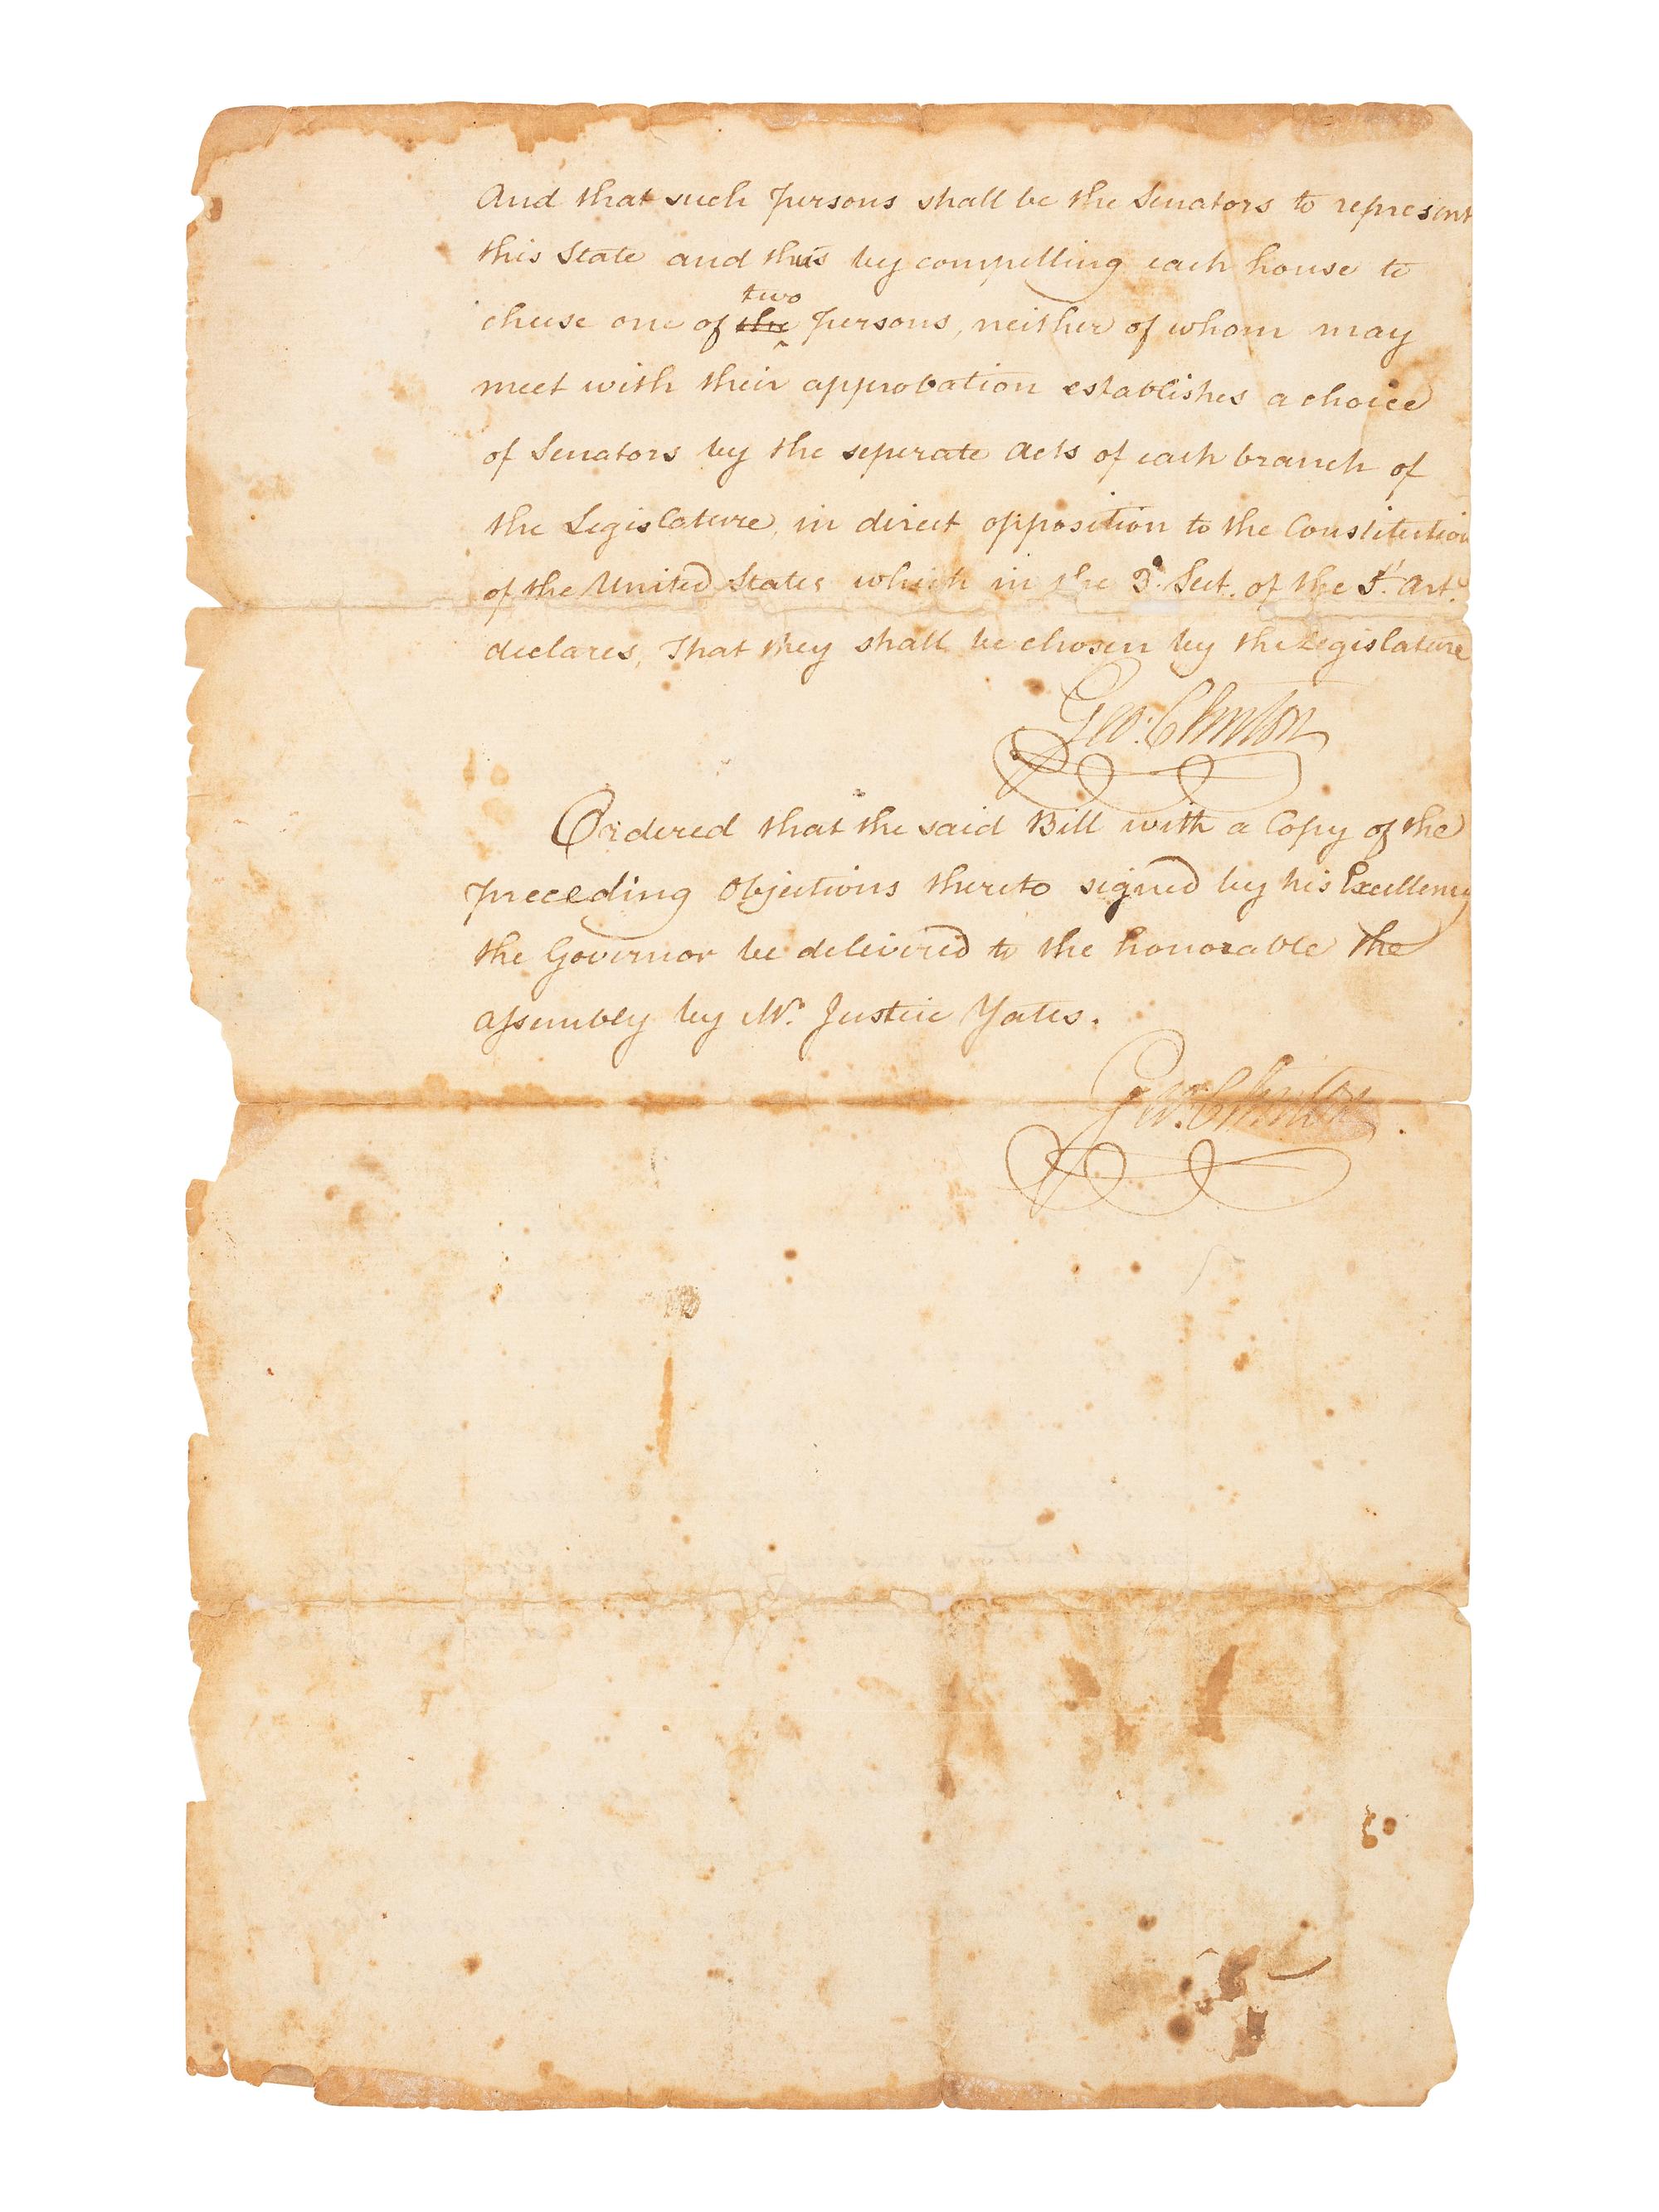 And that such persons shall be the Senators to represent
this State and thus by compelling each house to
two
chuse one of the persons, neither of whom may
meet with their approbation establishes a choice
of Senators by the seperate Acts of each branch of
the Legislature, in direct opposition to the Constitution
of the United States which in the 3d. Sect. of the 1st. Art.
declares, That they shall be chosen by the Legislature
Geo: Clinton
Ordered that the said Bill with a Copy of the
preceding Objections thereto signed by his Excellency
the Governor be delivered to the honorable the
Assembly by Mr. Justice Yates.
Geo: Clinton